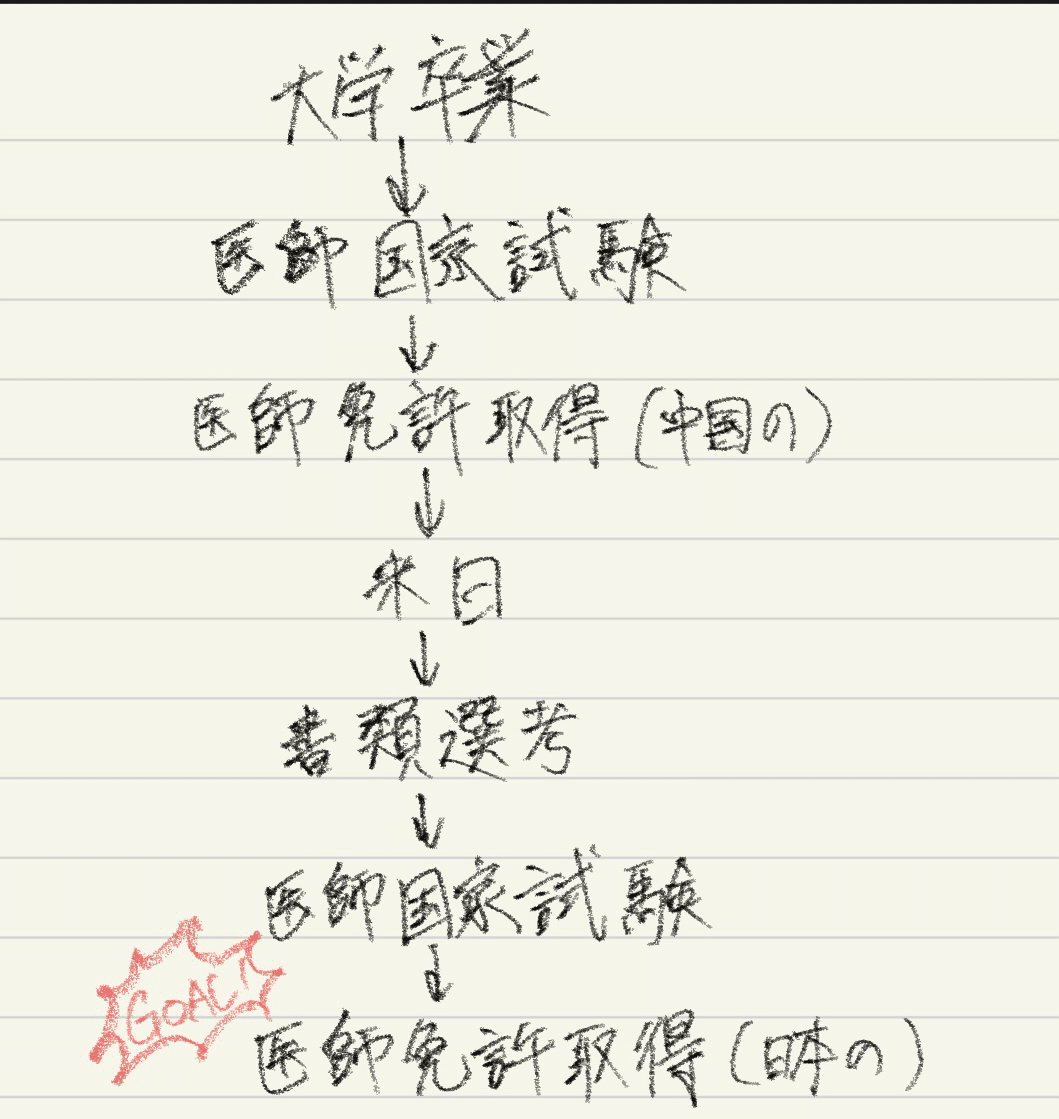 大学卒業
↓
医師国家試験
↓
医師免許取得(中国の)
↓
来日
↓
書類選考
↓
医師国家試験
↓
GOAL!
医師免許取得(日本の)